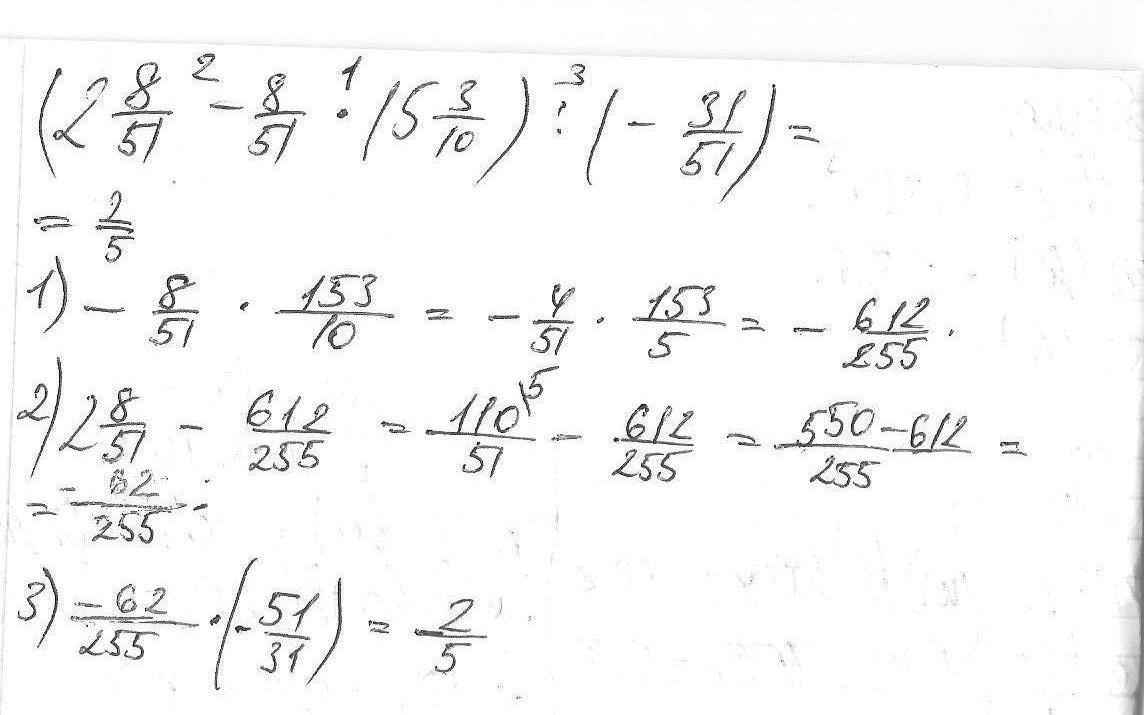 (2 8/51 ² - 8/51 ¹· (5 3/10) ³: (- 31/51) =
= 2/5
1) - 8/51 · 153/10 = - 4/51 · 153/5 = - 612/255 .
2) 2 8/51 - 612/255 = 110\5/51 - 612/255 = 550-612/255 =
= -62/255 .
3) -62/255 · (- 51/31) = 2/5